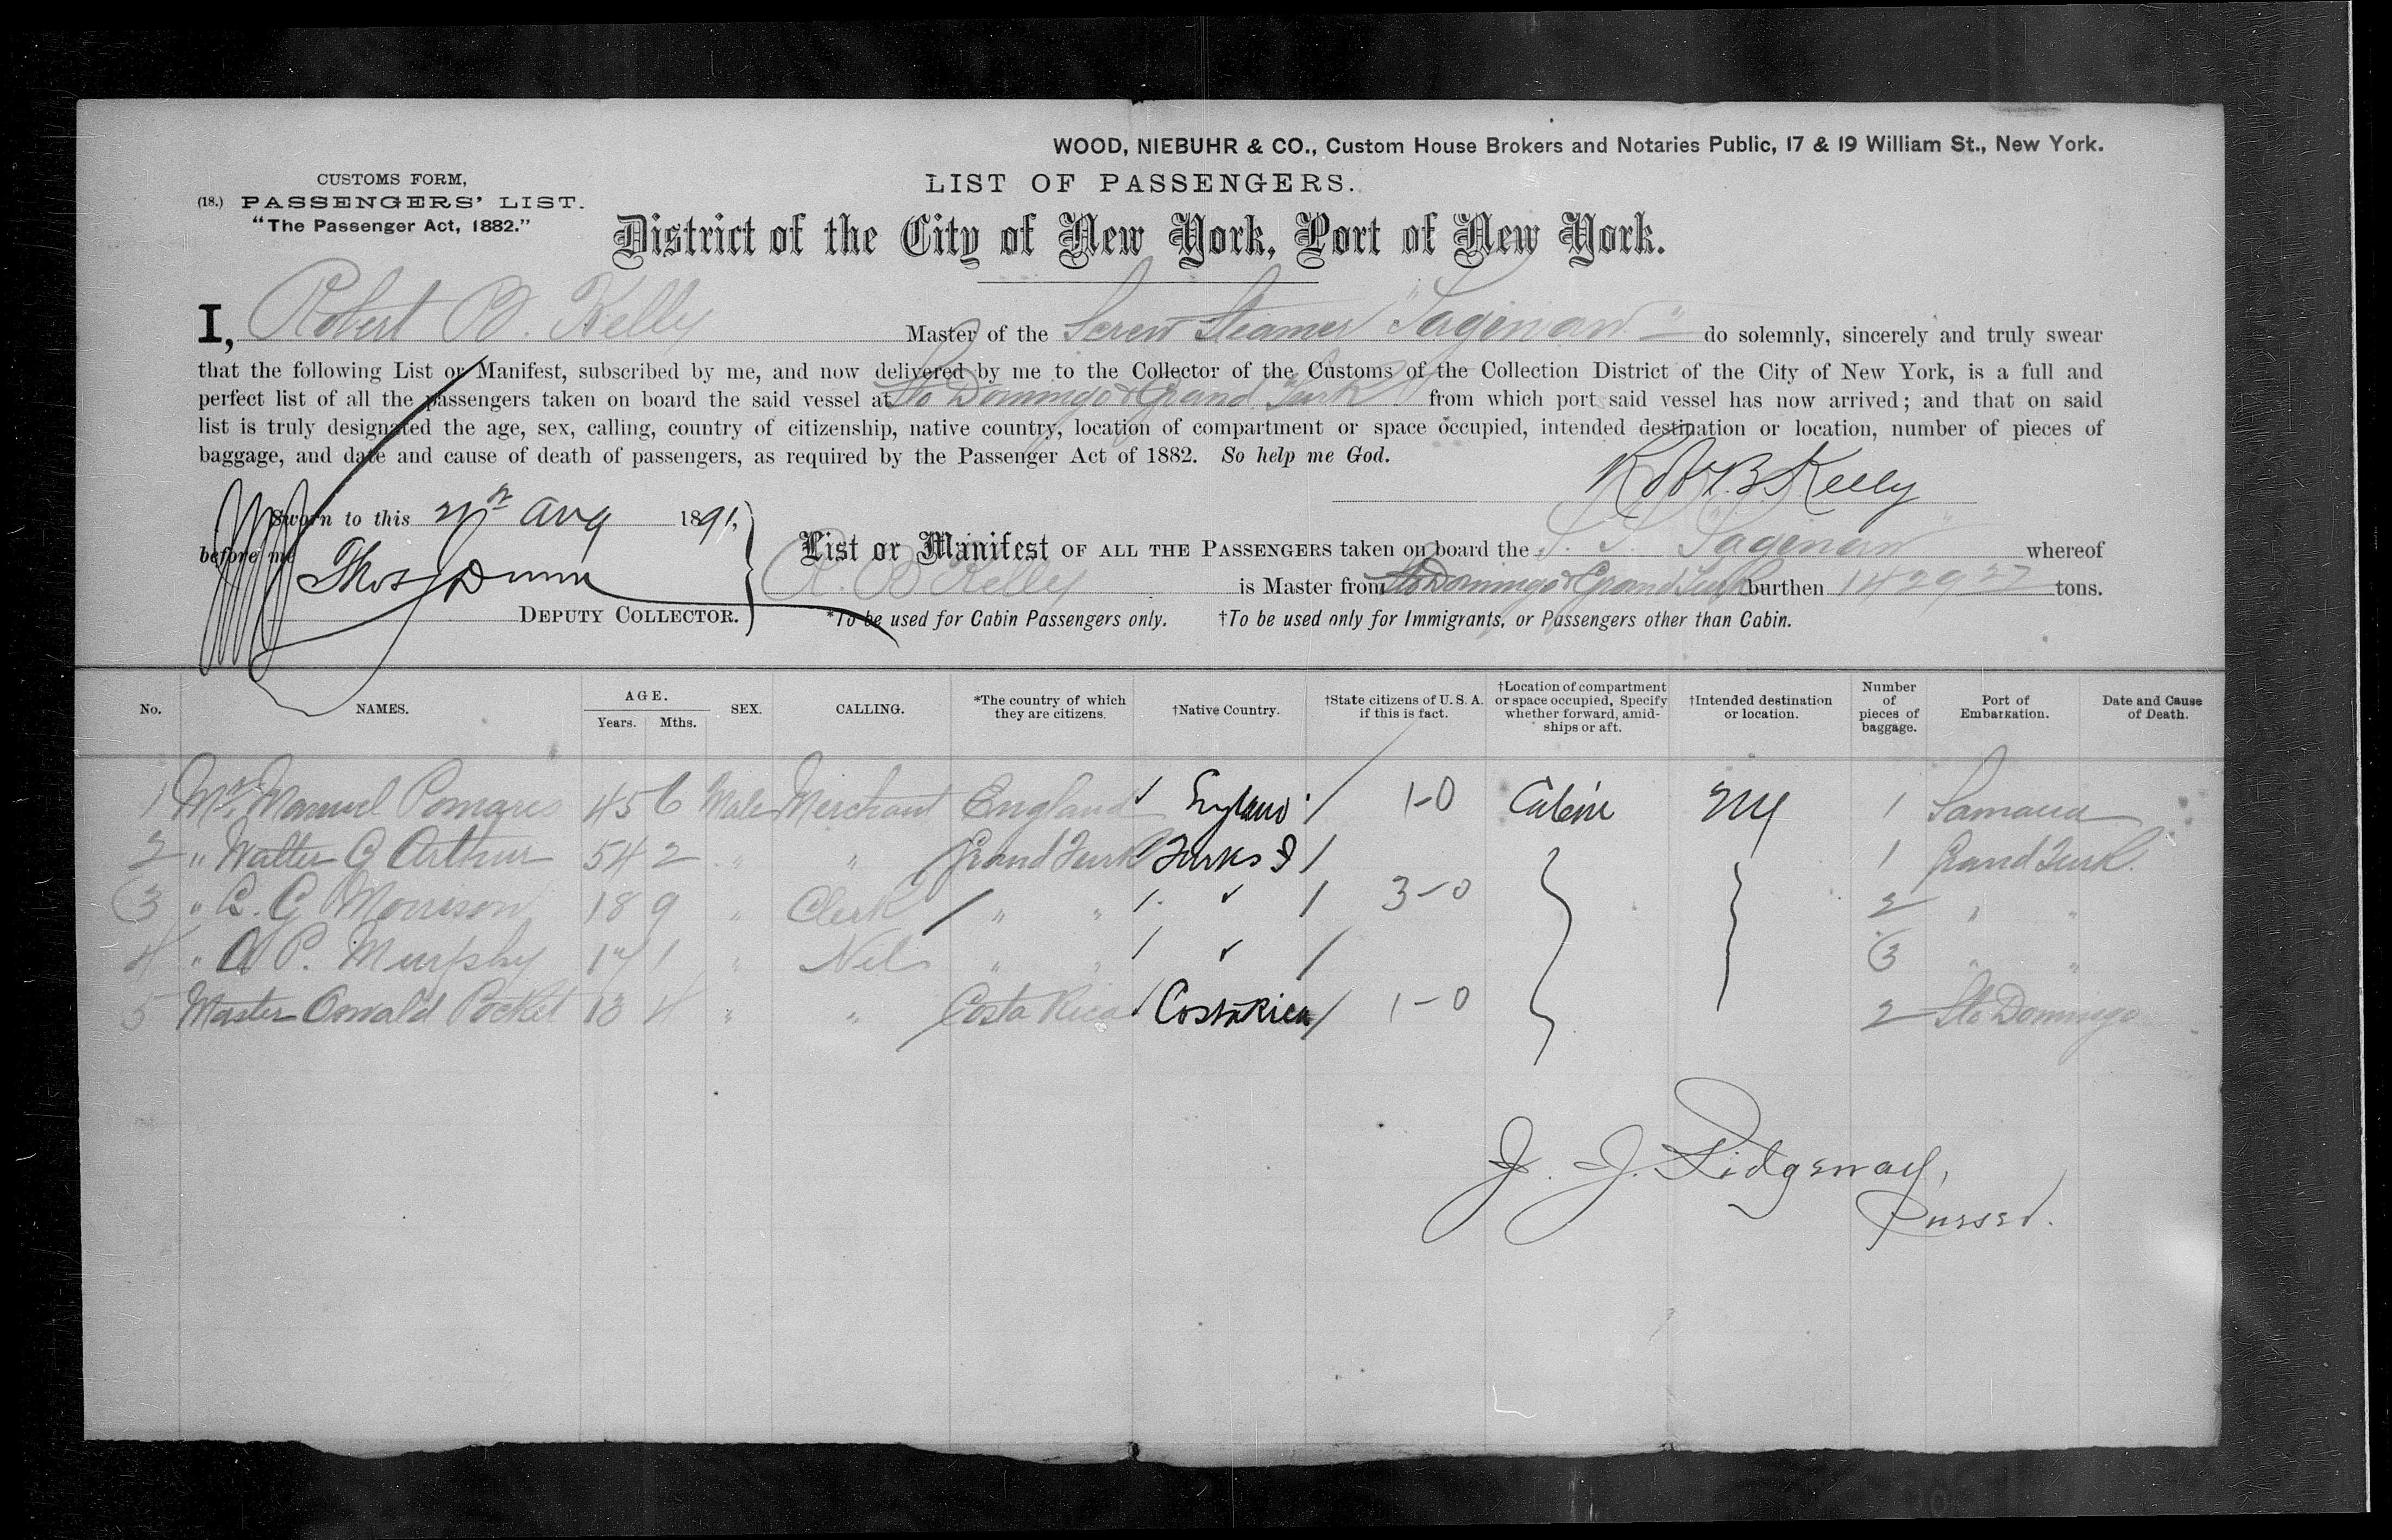 WOOD, NIEBUHR & CO., Custom House Brokers and Notaries Public, 17 & 19 William St., New York.
CUSTOMS FORM,
(18.) PASSENGERS' LIST.
"The Passenger Act, 1882."
LIST OF PASSENGERS.
District of the City of New York, Port of New York.
I, Robert B. Kelly Master of the Screw Steamer "Saginaw" do solemnly, sincerely and truly swear
that the following List or Manifest, subscribed by me, and now delivered by me to the Collector of the Customs of the Collection District of the City of New York, is a full and
perfect list of all the passengers taken on board the said vessel at Sto Domingo & Grand Turk from which port said vessel has now arrived; and that on said
list is truly designated the age, sex, calling, country of citizenship, native country, location of compartment or space occupied, intended destination or location, number of pieces of
baggage, and date and cause of death of passengers, as required by the Passenger Act of 1882. So help me God.
Robt. B. Kelly
Sworn to this 21st Aug 1891,
before me Thos J Dunn
DEPUTY COLLECTOR.
List or Manifest OF ALL THE PASSENGERS taken on board the S. S. "Saginaw" whereof
R. B Kelly is Master from Sto Domingo & Grand Turk burthen 1429 27 tons.
*To be used for Cabin Passengers only. †To be used only for Immigrants, or Passengers other than Cabin.
No. NAMES. AGE. Years. Mths. SEX. CALLING. *The country of which they are citizens. †Native Country. †State citizens of U. S. A. if this is fact. †Location of compartment or space occupied, Specify whether forward, amidships or aft. †Intended destination or location. Number of pieces of baggage. Port of Embarkation. Date and Cause of Death.
1 Mr. Manuel Pomares 45 6 Male Merchant England England 1-0 Cabin NY 1 Samana
2 " Walter G Arthur 54 2 " " Grand Turk Turks I 1 Grand Turk
3 " C. G Morrison 18 9 " Clerk " " 3-0 2 " "
4 " A P. Murphy 17 1 " Nil " " 3 " "
5 Master Oswald Pocket 13 4 " " Costa Rica Costa Rica 1-0 2 Sto Domingo
J. J. Ridgeway,
Purser.